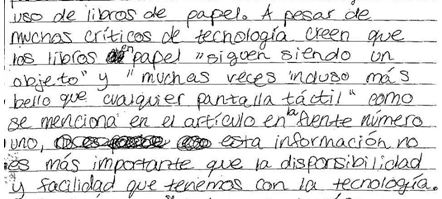 uso de libros de papel. A pesar de
muchos críticos de tecnología creen que
los libros en papel "siguen siendo un
objeto" y "muchas veces incluso más
bello que cualquier pantalla táctil" como
se menciona en el artículo en la fuente número
uno, esta información no
es más importante que la disponsibilidad
y facilidad que tenemos con la tecnología.